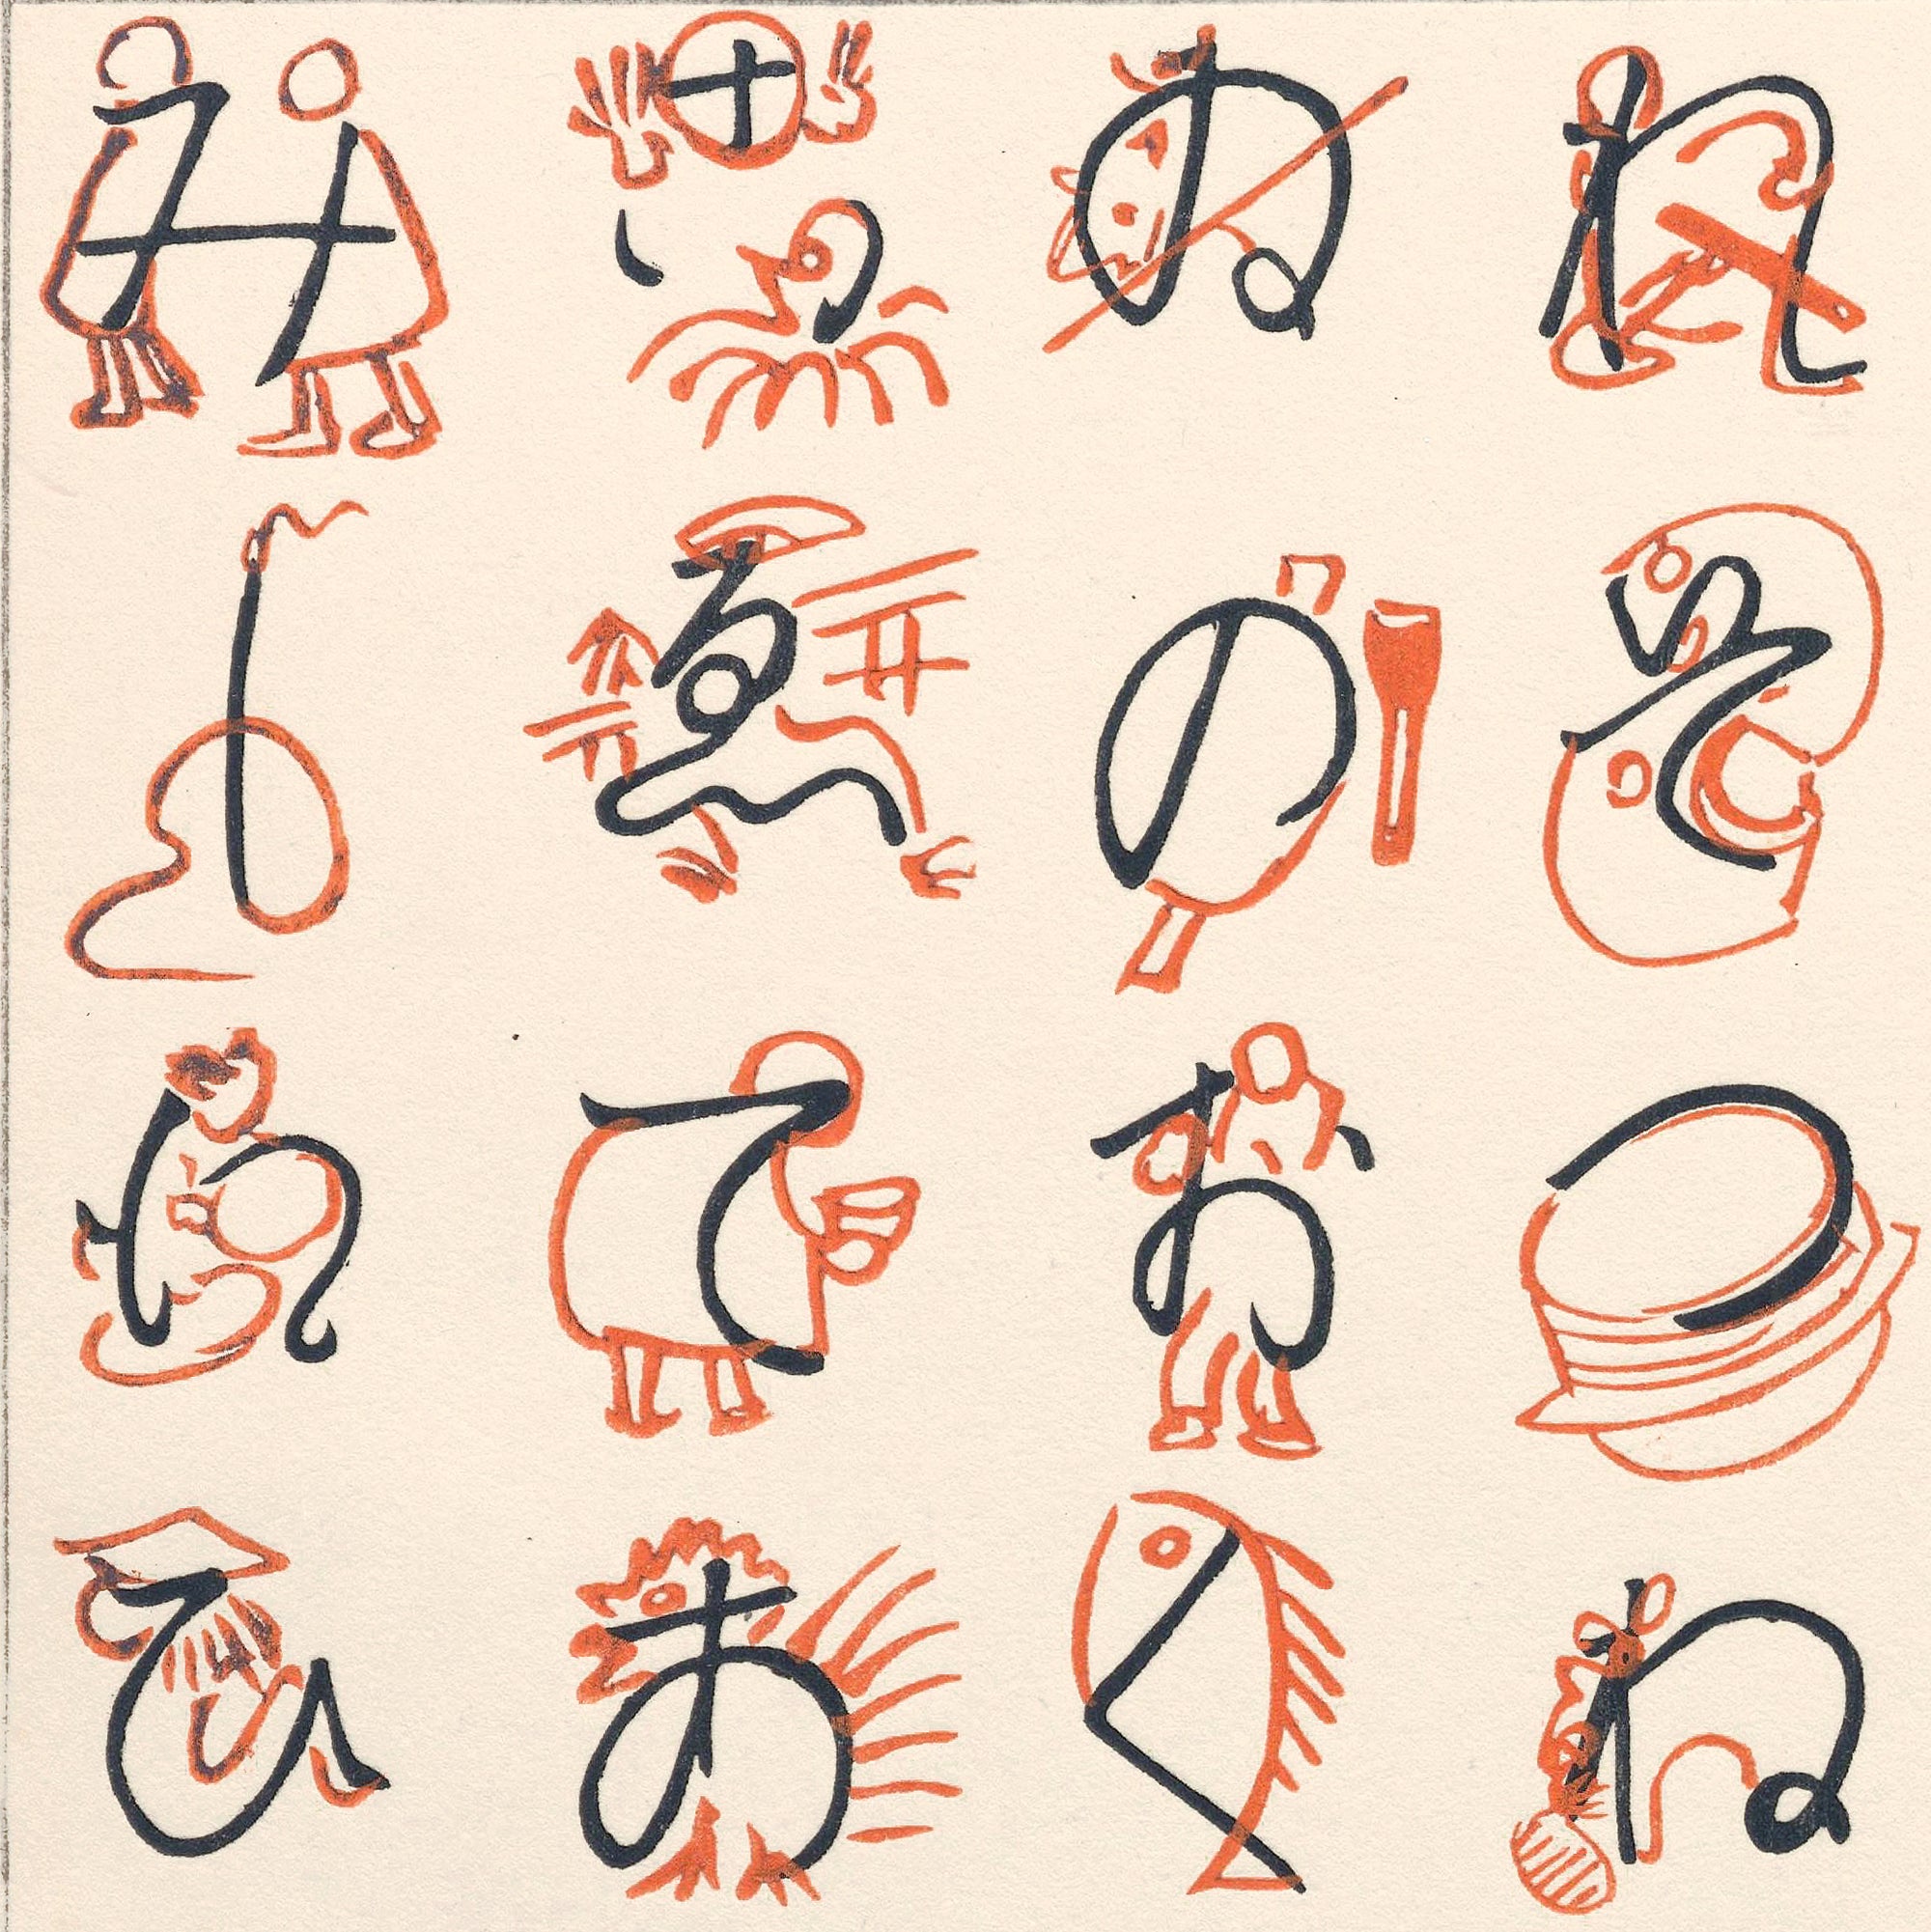 ぬ れ
し ゑ の そ
て お つ
ひ あ く ね